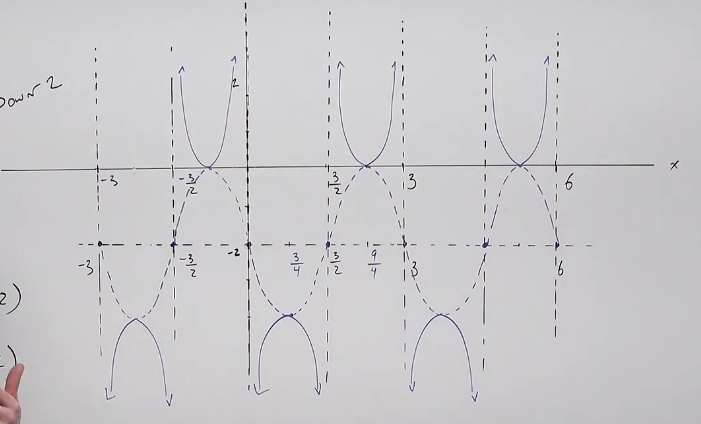 Down 2
2
x
-3 -3/2 3/2 3 6
-2
-3 -3/2 3/4 3/2 9/4 3 6
2)
)